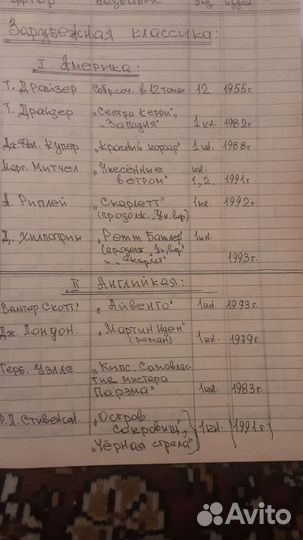 Автор Название экз. издан.
Зарубежная классика:
I Америка:
Т. Драйзер Собр. соч. в 12 томах 12 1955г.
Т. Драйзер „Сестра Керри",
„Западня" 1 кн. 1982г.
Дж. Фен. Купер „Красный корсар" 1 кн. 1988г.
Марг. Митчел „Унесённые кн.
ветром" 1, 2. 1991г.
А. Риплей „Скарлетт" 1кн. 1992г.
(продолж. Ун. вер)
Д. Хилпатрик „Ретт Батлер" 1кн.
(продолж. „Ун. вер"
и „Скарлет" 1993г.
II Английская:
Валтер Скотт „Айвенго" 1кн. 1993г.
Дж. Лондон. „Мартин Иден" 1кн. 1979г.
(роман)
Герб. Уэллс „Кипс. Самовлас-
тие мистера
Парэма" 1кн. 1983г.
Р.Л. Стивенсон. „Остров
сокровищ", 1кн. 1991г.
„Чёрная стрела"
Avito